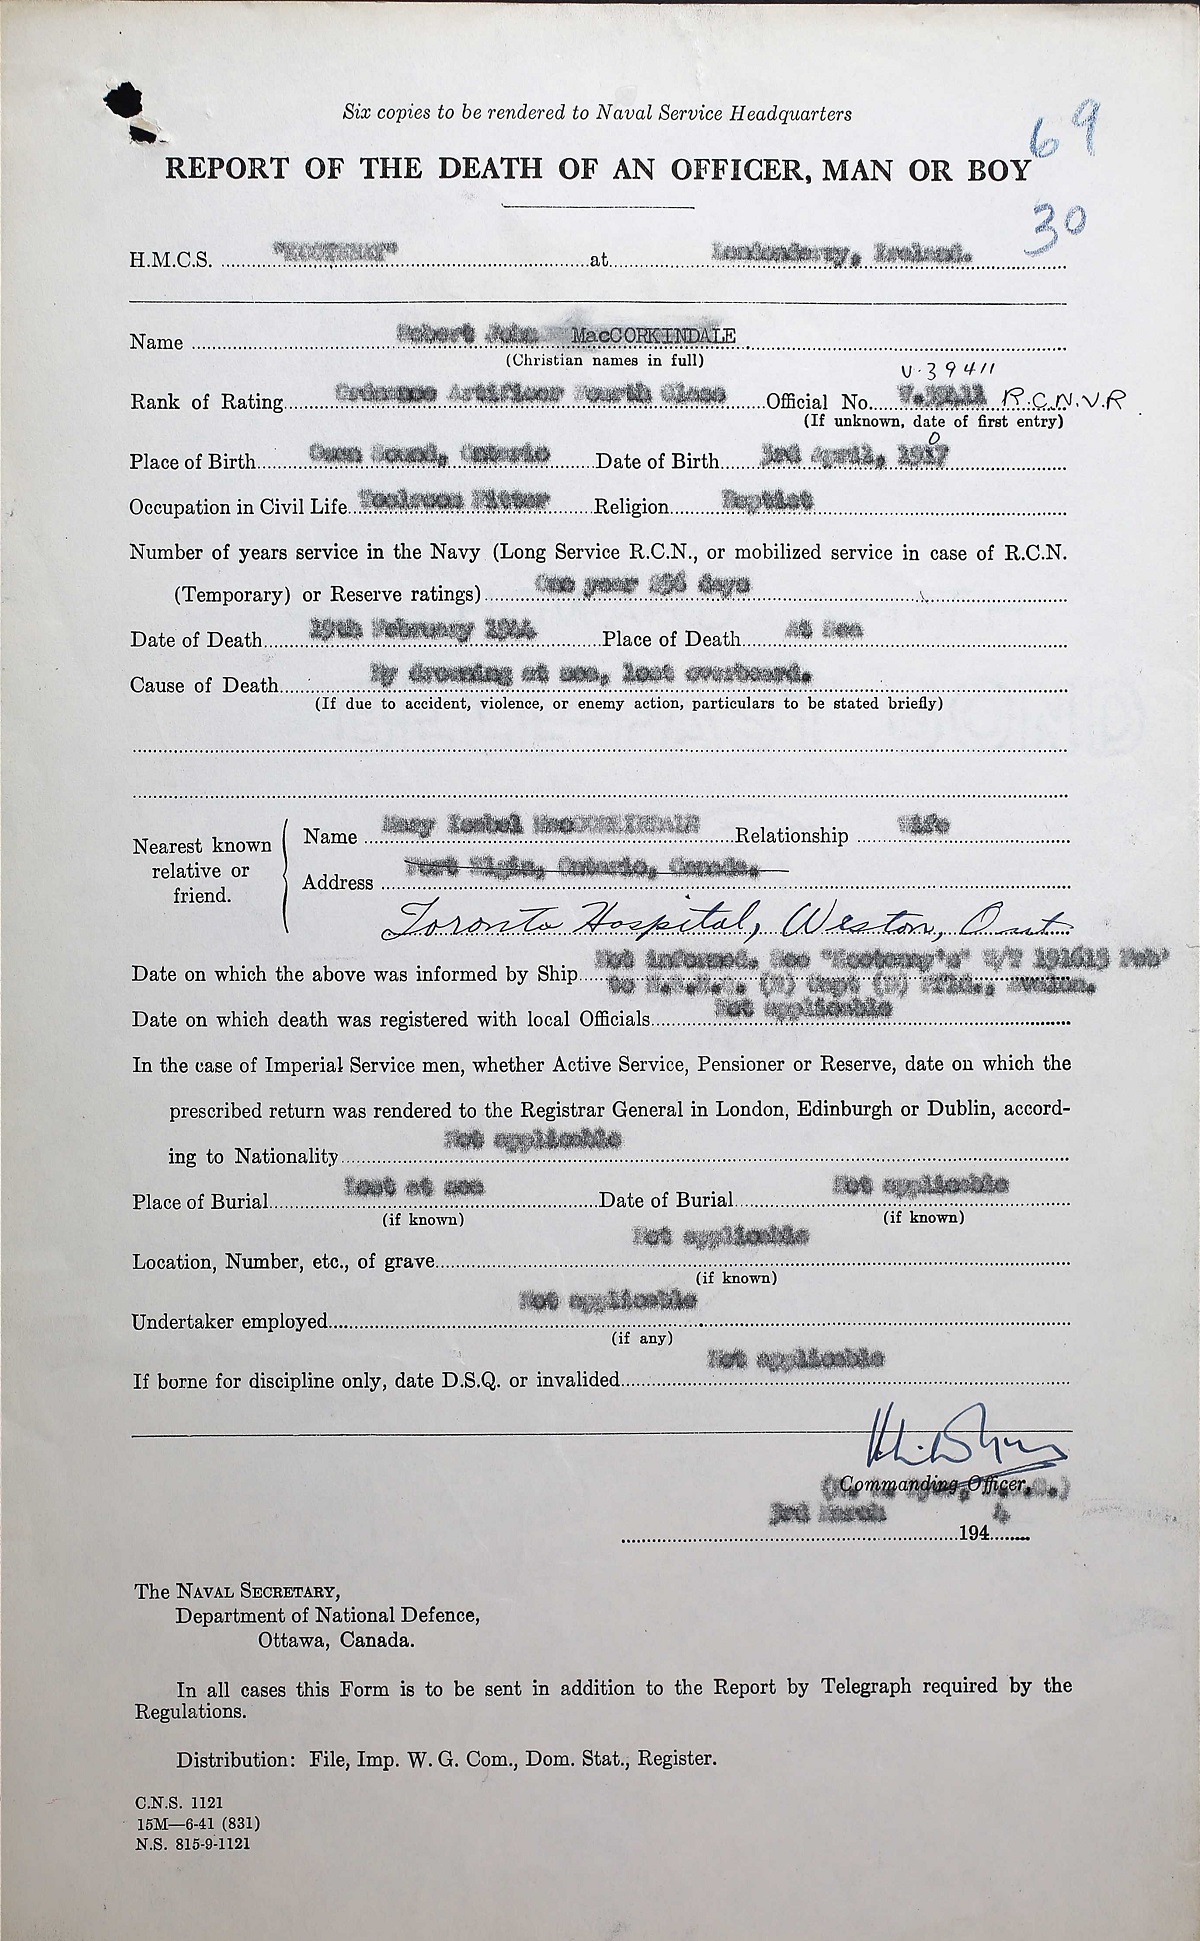 Six copies to be rendered to Naval Service Headquarters
69
REPORT OF THE DEATH OF AN OFFICER, MAN OR BOY
30
H.M.C.S. "KOOTENAY" at Londonderry, Ireland.
Name Robert John MacCORKINDALE
(Christian names in full)
V.39411
Rank of Rating Ordnance Artificer Fourth Class Official No. R.C.N.V.R
(If unknown, date of first entry)
Place of Birth Owen Sound, Ontario Date of Birth 3rd April,
Occupation in Civil Life Toolroom Fitter Religion Baptist
Number of years service in the Navy (Long Service R.C.N., or mobilized service in case of R.C.N.
(Temporary) or Reserve ratings) One year days
Date of Death 19th February 1944 Place of Death At Sea
Cause of Death By drowning at sea, lost overboard.
(If due to accident, violence, or enemy action, particulars to be stated briefly)
Nearest known relative or friend.
Name Mary Isobel MacCORKINDALE Relationship Wife
Address Port Elgin, Ontario, Canada.
Toronto Hospital, Weston, Ont
Date on which the above was informed by Ship Not informed. See "Kootenay's" W/T 191615 Feb'
to (D) Capt (D) Nfld., Avalon.
Date on which death was registered with local Officials Not applicable
In the case of Imperial Service men, whether Active Service, Pensioner or Reserve, date on which the
prescribed return was rendered to the Registrar General in London, Edinburgh or Dublin, accord-
ing to Nationality Not applicable
Place of Burial Lost at sea Date of Burial Not applicable
(if known) (if known)
Location, Number, etc., of grave Not applicable
(if known)
Undertaker employed Not applicable
(if any)
If borne for discipline only, date D.S.Q. or invalided Not applicable
Commanding Officer,
3rd March 1944
The NAVAL SECRETARY,
Department of National Defence,
Ottawa, Canada.
In all cases this Form is to be sent in addition to the Report by Telegraph required by the
Regulations.
Distribution: File, Imp. W. G. Com., Dom. Stat., Register.
C.N.S. 1121
15M—6-41 (831)
N.S. 815-9-1121